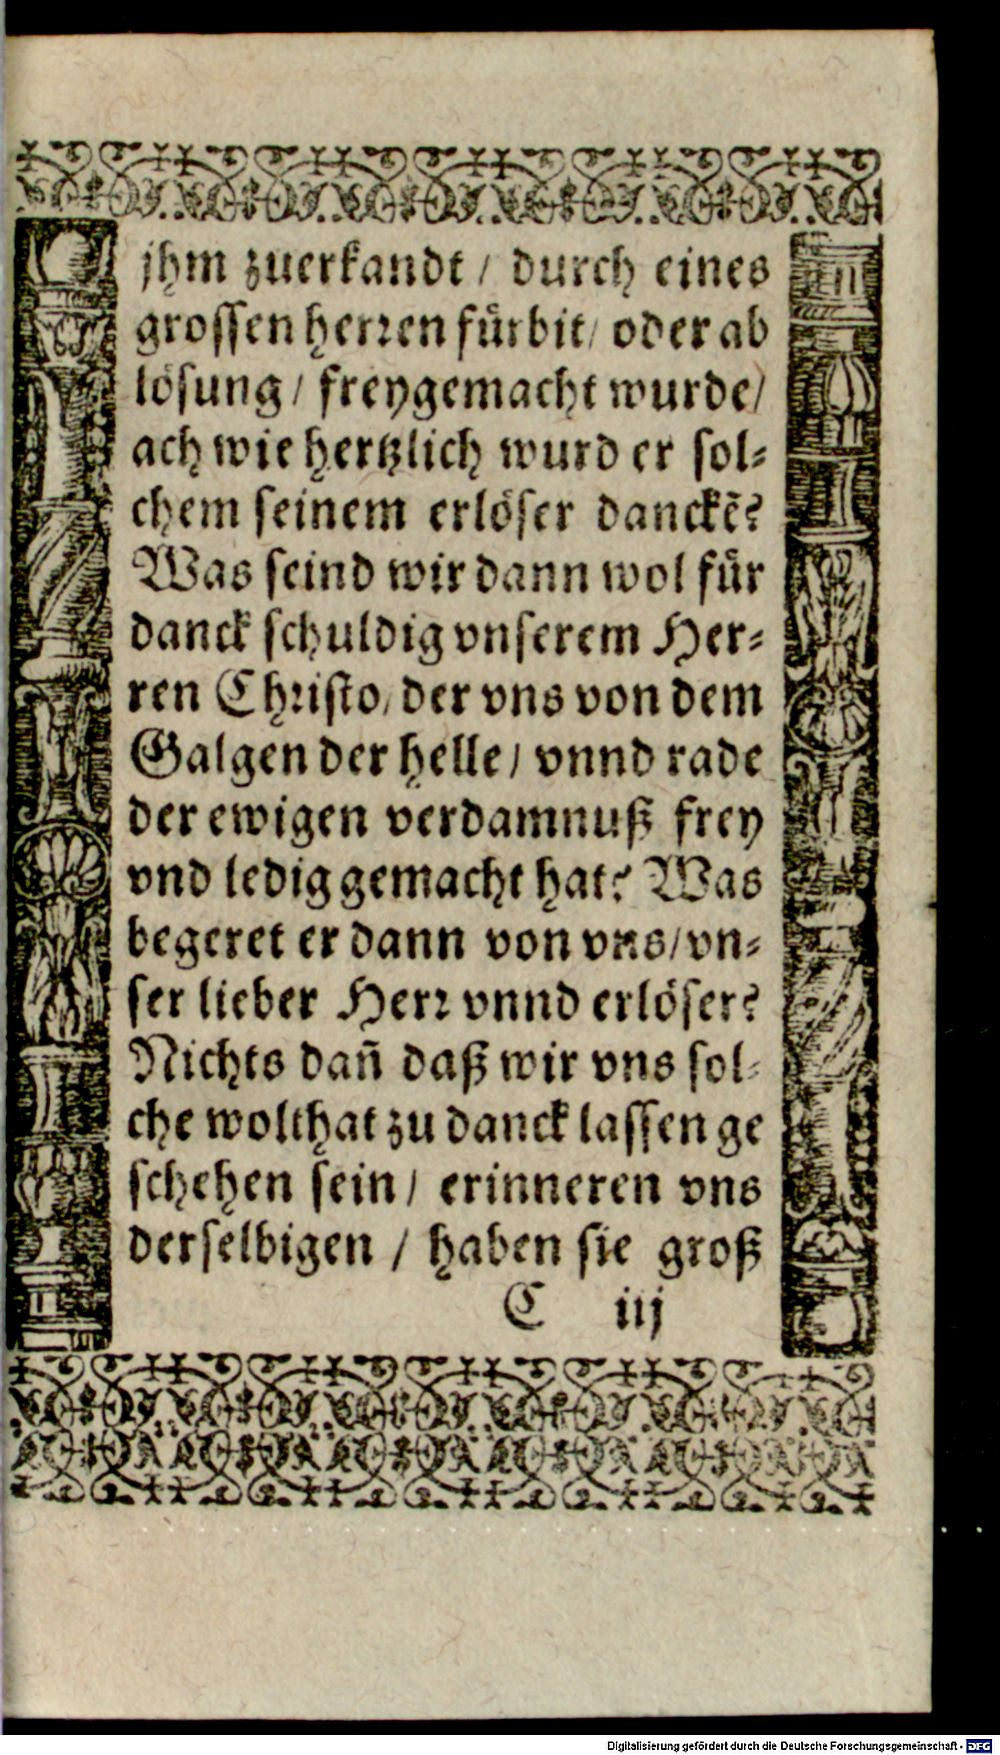 jhm zuerkandt / durch eines
grossen herꝛen fürbit / oder ab
lösung / freygemacht wurde /
ach wie hertzlich wurd er sol-
chem seinem erlöser danckẽ?
Was seind wir dann wol für
danck schuldig vnserem Her-
ren Chꝛisto / der vns von dem
Galgen der helle / vnnd rade
der ewigen verdamnuß frey
vnd ledig gemacht hat? Was
begeret er dann von vns / vn-
ser lieber Herꝛ vnnd erlöser?
Nichts dañ daß wir vns sol-
che wolthat zu danck lassen ge
schehen sein / erinneren vns
derselbigen / haben sie groß
C iij
Digitalisierung gefördert durch die Deutsche Forschungsgemeinschaft - DFG